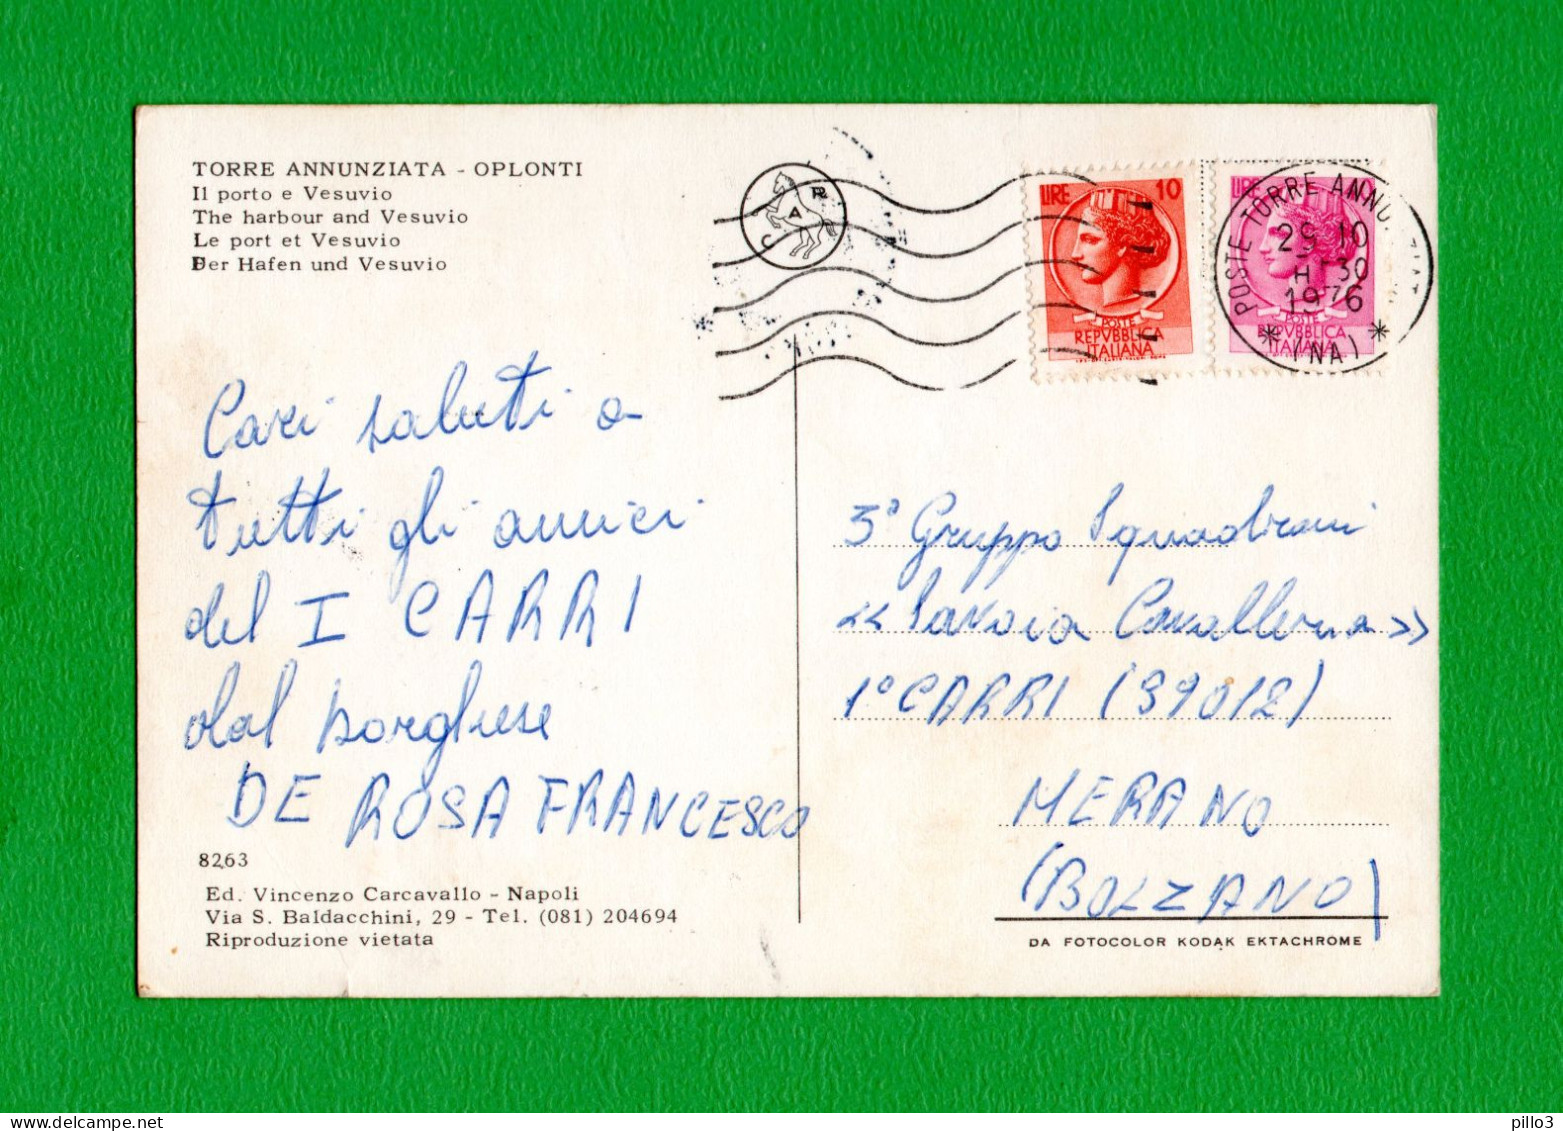 TORRE ANNUNZIATA - OPLONTI
Il porto e Vesuvio
The harbour and Vesuvio
Le port et Vesuvio
Der Hafen und Vesuvio
CAR
LIRE 10
POSTE
REPVBBLICA
ITALIANA
LIRE
POSTE
REPVBBLICA
ITALIANA
POSTE TORRE ANNU
29 10
1976
*(NA)*
Cari saluti a
tutti gli amici
del I CARRI
dal borghese
DE ROSA FRANCESCO
3° Gruppo Squadroni
«Savoia Cavalleria»
1° CARRI (39012)
MERANO
(BOLZANO)
8263
Ed. Vincenzo Carcavallo - Napoli
Via S. Baldacchini, 29 - Tel. (081) 204694
Riproduzione vietata
DA FOTOCOLOR KODAK EKTACHROME
pillo3